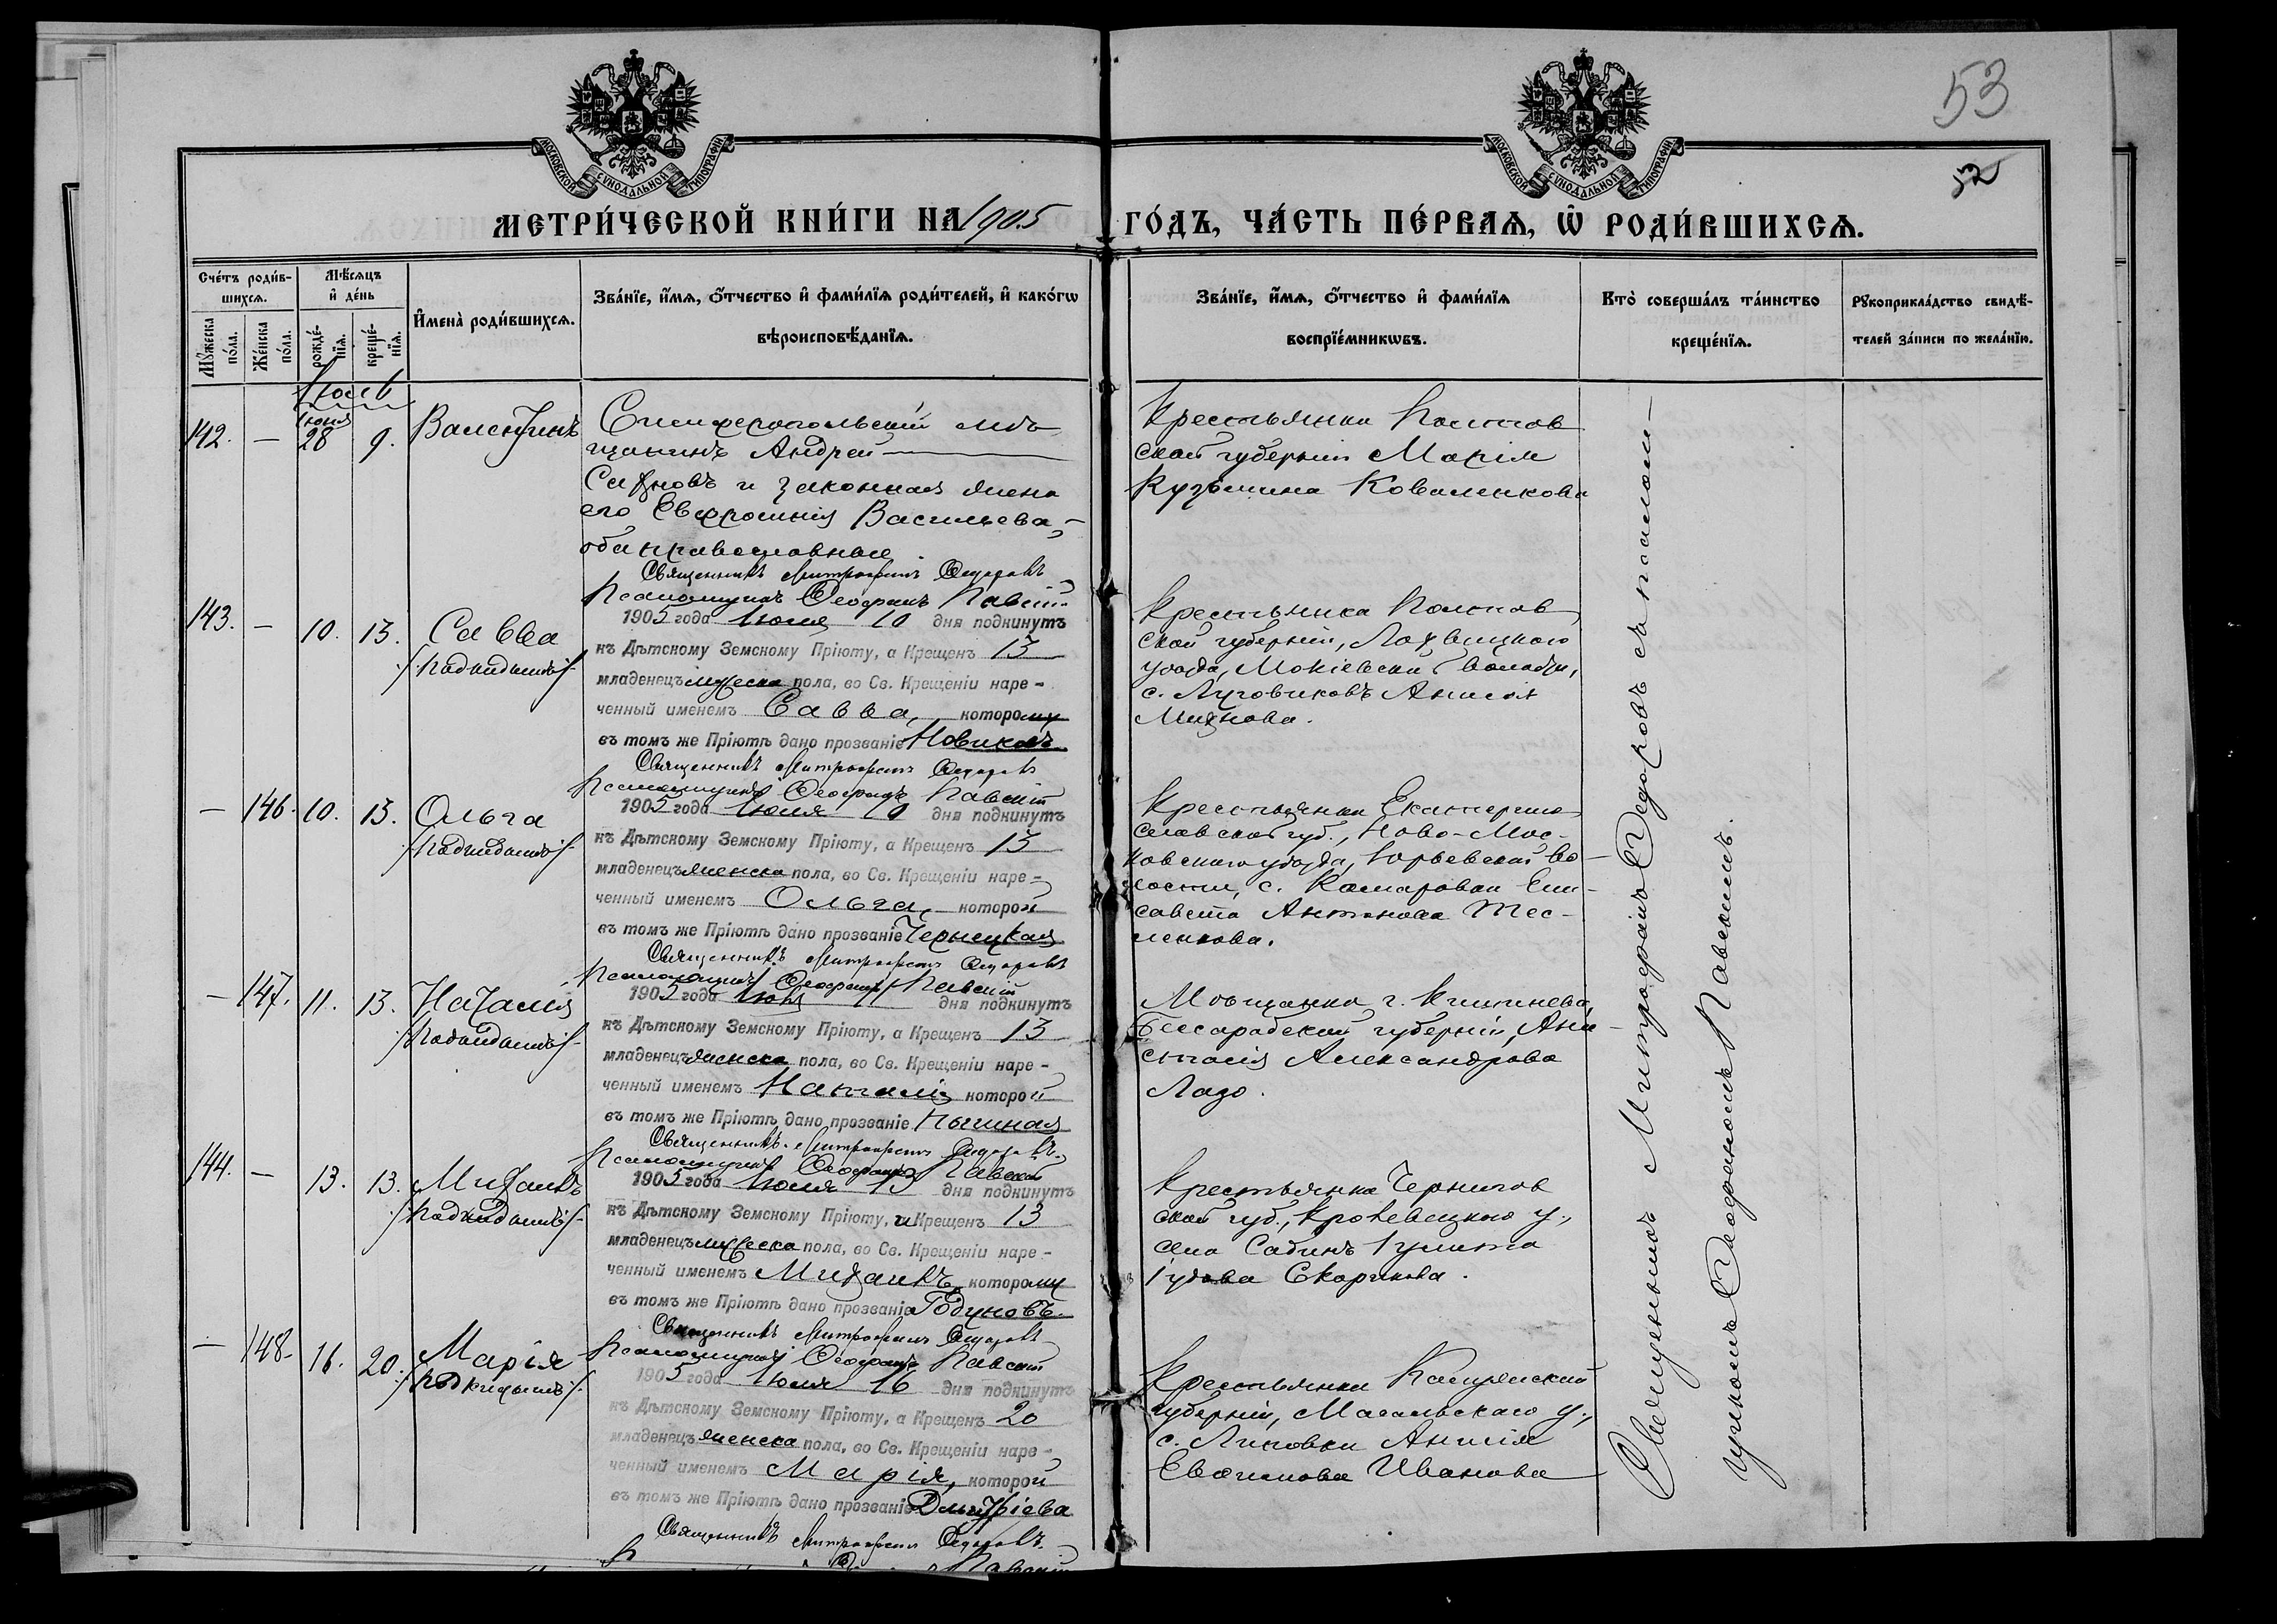 53
52
МОСКОВСКОЙ СѴНОДАЛЬНОЙ ТИПОГРАФІИ
МОСКОВСКОЙ СѴНОДАЛЬНОЙ ТИПОГРАФІИ
МЕТРИ́ЧЕСКОЙ КНИ́ГИ НА 1905 ГО́ДЪ, ЧА́СТЬ ПЕ́РВАѦ, Ѡ҆ РОДИ́ВШИХСѦ.
Счéтъ роди́в-
шихсѧ.
Мѣ́сѧцъ
и҆ де́нь
Мꙋ́жеска по́ла.
Же́нска по́ла.
рожде́-
нїѧ.
креще́-
нїѧ.
И҆мена̀ роди́вшихсѧ.
Зва́нїе, и҆́мѧ, ѻ҆́тчество и҆ фами́лїѧ роди́телей, и҆ како́гѡ
вѣроисповѣ́данїѧ.
Зва́нїе, и҆́мѧ, ѻ҆́тчество и҆ фами́лїѧ
воспрїе́мникѡвъ.
Кто̀ соверша́лъ та́инство
креще́нїѧ.
Рꙋкоприкла́дство свидѣ́-
телей за́писи по жела́нїю.
Іюль
142. — Іюня 28 9. Валентинъ
Симферопольскій мѣ-
щанинъ Андрей
и законная жена
его Евфросинія Васильева,
оба православные
Священникъ Митрофанъ Ѳедоровъ
Псаломщикъ Ѳеофанъ Павскій
Крестьянка Полтав
ской губерніи Марія
Кузьмина Коваленкова
143. — 10. 13. Савва
/подкидышъ/
1905 года Іюля 10 дня подкинутъ
къ Дѣтскому Земскому Пріюту, а Крещенъ 13
младенецъ мужеска пола, во Св. Крещеніи наре-
ченный именемъ Савва, которому
въ томъ же Пріютѣ дано прозваніе Новиковъ
Священникъ Митрофанъ Ѳедоровъ
Псаломщикъ Ѳеофанъ Павскій
Крестьянка Полтав
ской губерніи, Лохвицкаго
уѣзда, Мокіевской волости,
с. Луговиковъ
— 146. 10. 13. Ольга
/подкидышъ/
1905 года Іюля 10 дня подкинутъ
къ Дѣтскому Земскому Пріюту, а Крещенъ 13
младенецъ женска пола, во Св. Крещеніи наре-
ченный именемъ Ольга, которой
въ томъ же Пріютѣ дано прозваніе Чернецкая
Священникъ Митрофанъ Ѳедоровъ
Псаломщикъ Ѳеофанъ Павскій
Крестьянка Екатерино
славской губ., Ново-Мос-
ковскаго уѣзда, Юрьевской во-
лости, с. Ели-
савета Антонова Тес-
ленкова.
— 147. 11. 13. Наталія
/подкидышъ/
1905 года Іюля 11 дня подкинутъ
къ Дѣтскому Земскому Пріюту, а Крещенъ 13
младенецъ женска пола, во Св. Крещеніи наре-
ченный именемъ Наталія которой
въ томъ же Пріютѣ дано прозваніе
Священникъ Митрофанъ Ѳедоровъ
Псаломщикъ Ѳеофанъ Павскій
Мѣщанка г. Кишинева,
Бессарабской губерніи, Ана-
стасія Александрова
Лазо.
144. — 13. 13. Михаилъ
/подкидышъ/
1905 года Іюля 13 дня подкинутъ
къ Дѣтскому Земскому Пріюту, и Крещенъ 13
младенецъ мужеска пола, во Св. Крещеніи наре-
ченный именемъ Михаилъ, которому
въ томъ же Пріютѣ дано прозваніе Годуновъ
Священникъ Митрофанъ Ѳедоровъ
Псаломщикъ Ѳеофанъ Павскій
Крестьянка Чернигов
ской губ., Кролевецкаго у.,
села
— 148. 16. 20. Марія
/подкидышъ/
1905 года Іюля 16 дня подкинутъ
къ Дѣтскому Земскому Пріюту, а Крещенъ 20
младенецъ женска пола, во Св. Крещеніи наре-
ченный именемъ Марія, которой
въ томъ же Пріютѣ дано прозваніе Дмитріева
Священникъ Митрофанъ Ѳедоровъ
Павскій
Крестьянка Калужской
губерніи, Масальскаго у.,
с. Липовки
Иванова
Священникъ Митрофанъ Ѳедоровъ съ псалом-
щикомъ Ѳеофаномъ Павскимъ.